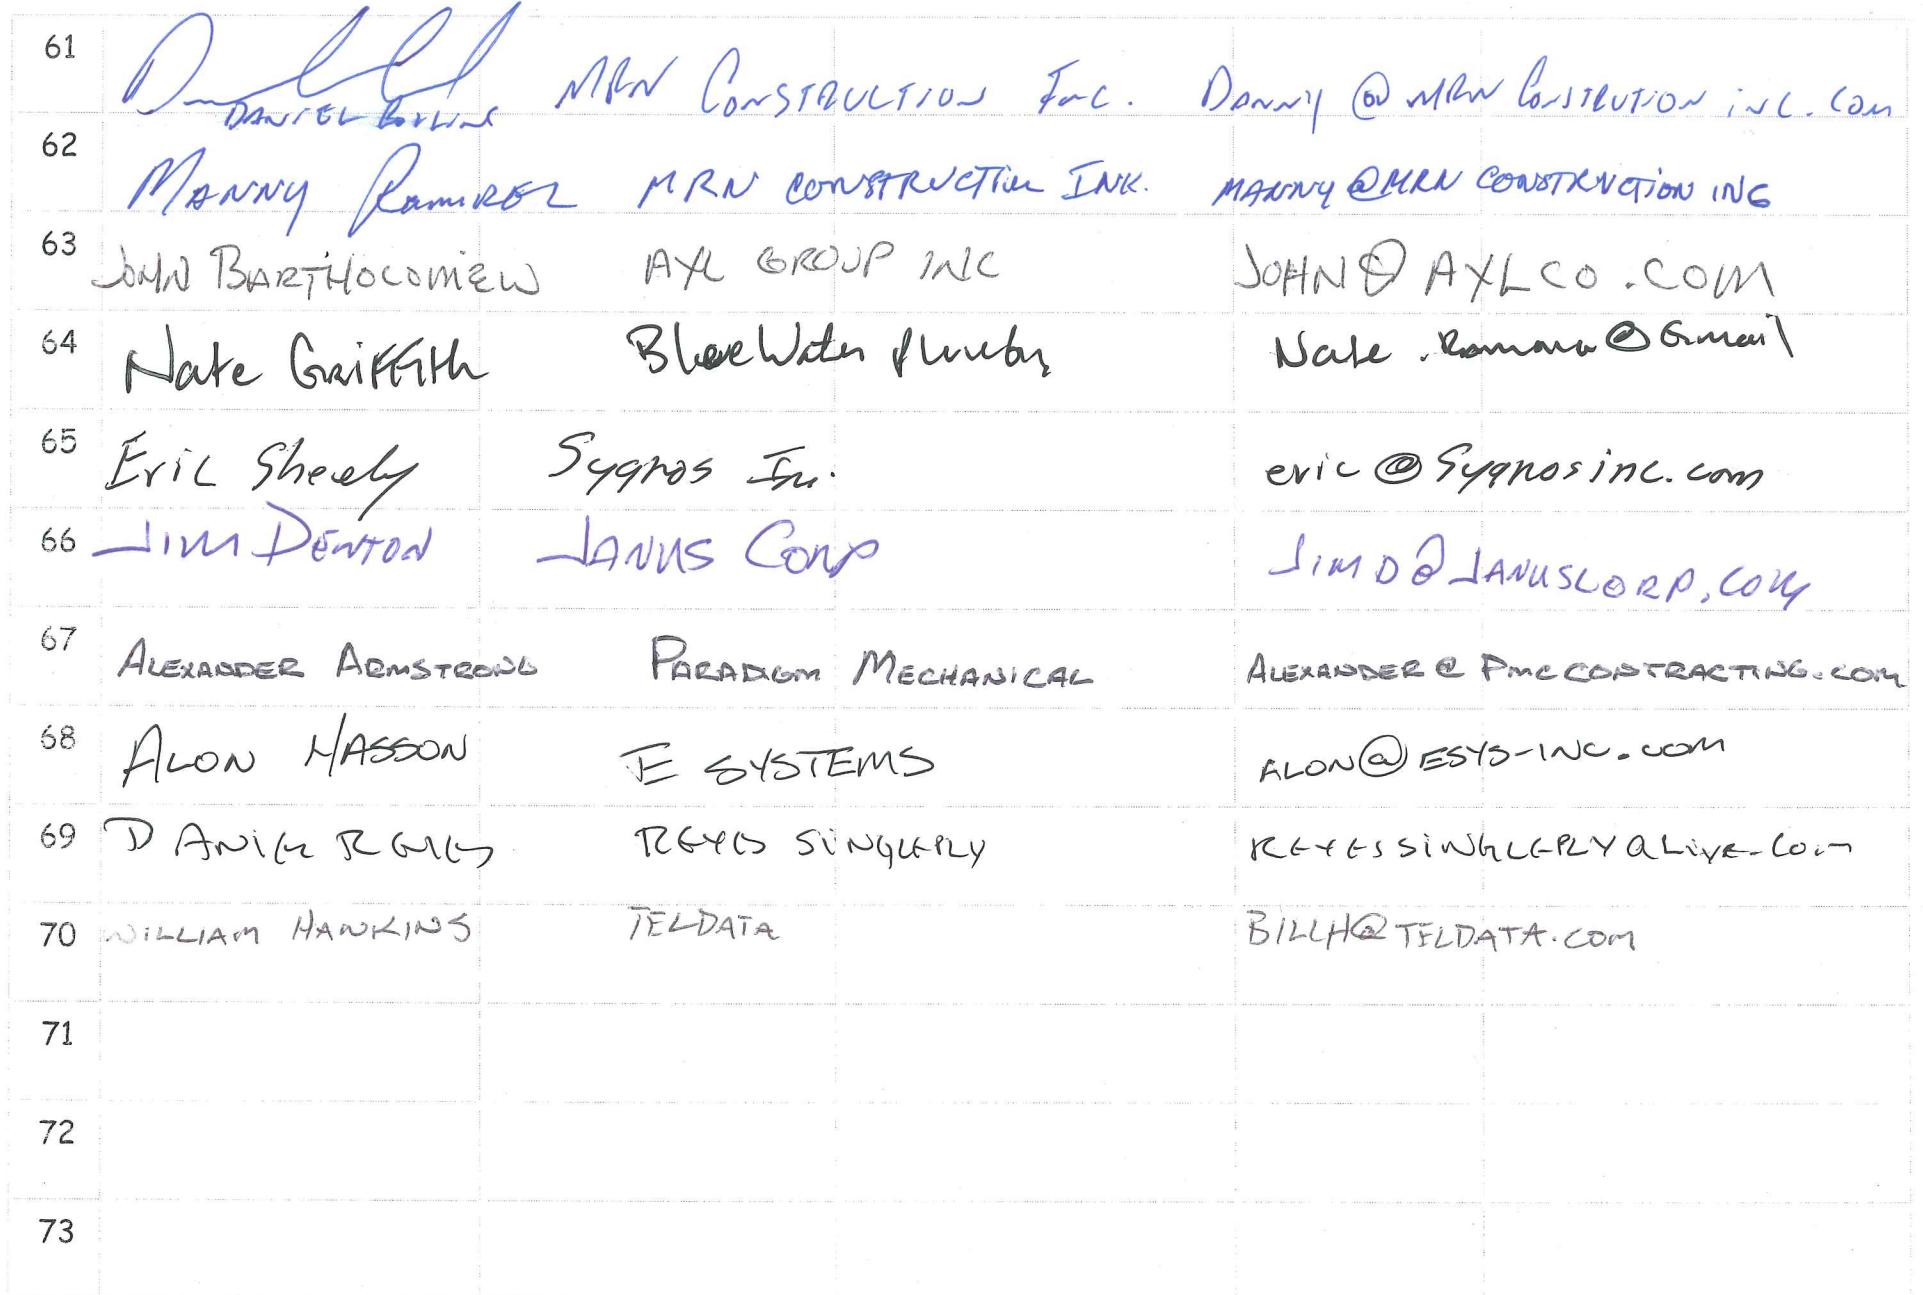 61 DANIEL MRN CONSTRUCTION Inc. DANNY @ MRN CONSTRUTION inc. com
62 MANNY RAMIREZ MRN CONSTRUCTION INK. MANNY @MRN CONSTRUCTION INC
63 JOHN BARTHOLOMEW AXL GROUP INC JOHN@AXLCO.COM
64 Nate GRIFFITH Blue Water Nate . @ Gmail
65 Eric Sheely Sygnos Inc. eric @ Sygnosinc.com
66 JIM DENTON JANUS CORP JIMD@JANUSCORP.COM
67 ALEXANDER ARMSTRONG PARADIGM MECHANICAL ALEXANDER@PMCCONTRACTING.COM
68 ALON HASSON E SYSTEMS ALON@ESYS-INC.COM
69 DANIEL REYES REYES SINGLEPLY REYESSINGLEPLY@LIVE.COM
70 WILLIAM HAWKINS TELDATA BILLH@TELDATA.COM
71
72
73